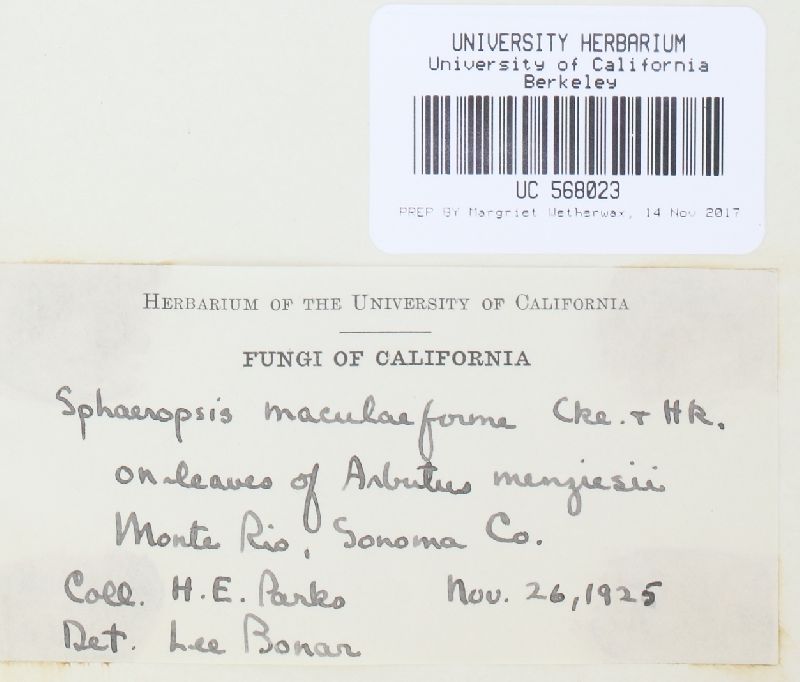 UNIVERSITY HERBARIUM
University of California
Berkeley
UC 568023
PREP BY Margriet Wetherwax, 14 Nov 2017
HERBARIUM OF THE UNIVERSITY OF CALIFORNIA
FUNGI OF CALIFORNIA
Sphaeropsis maculaeforme Cke. & Hk.
on leaves of Arbutus menziesii
Monte Rio, Sonoma Co.
Coll. H.E. Parks Nov. 26, 1925
Det. Lee Bonar